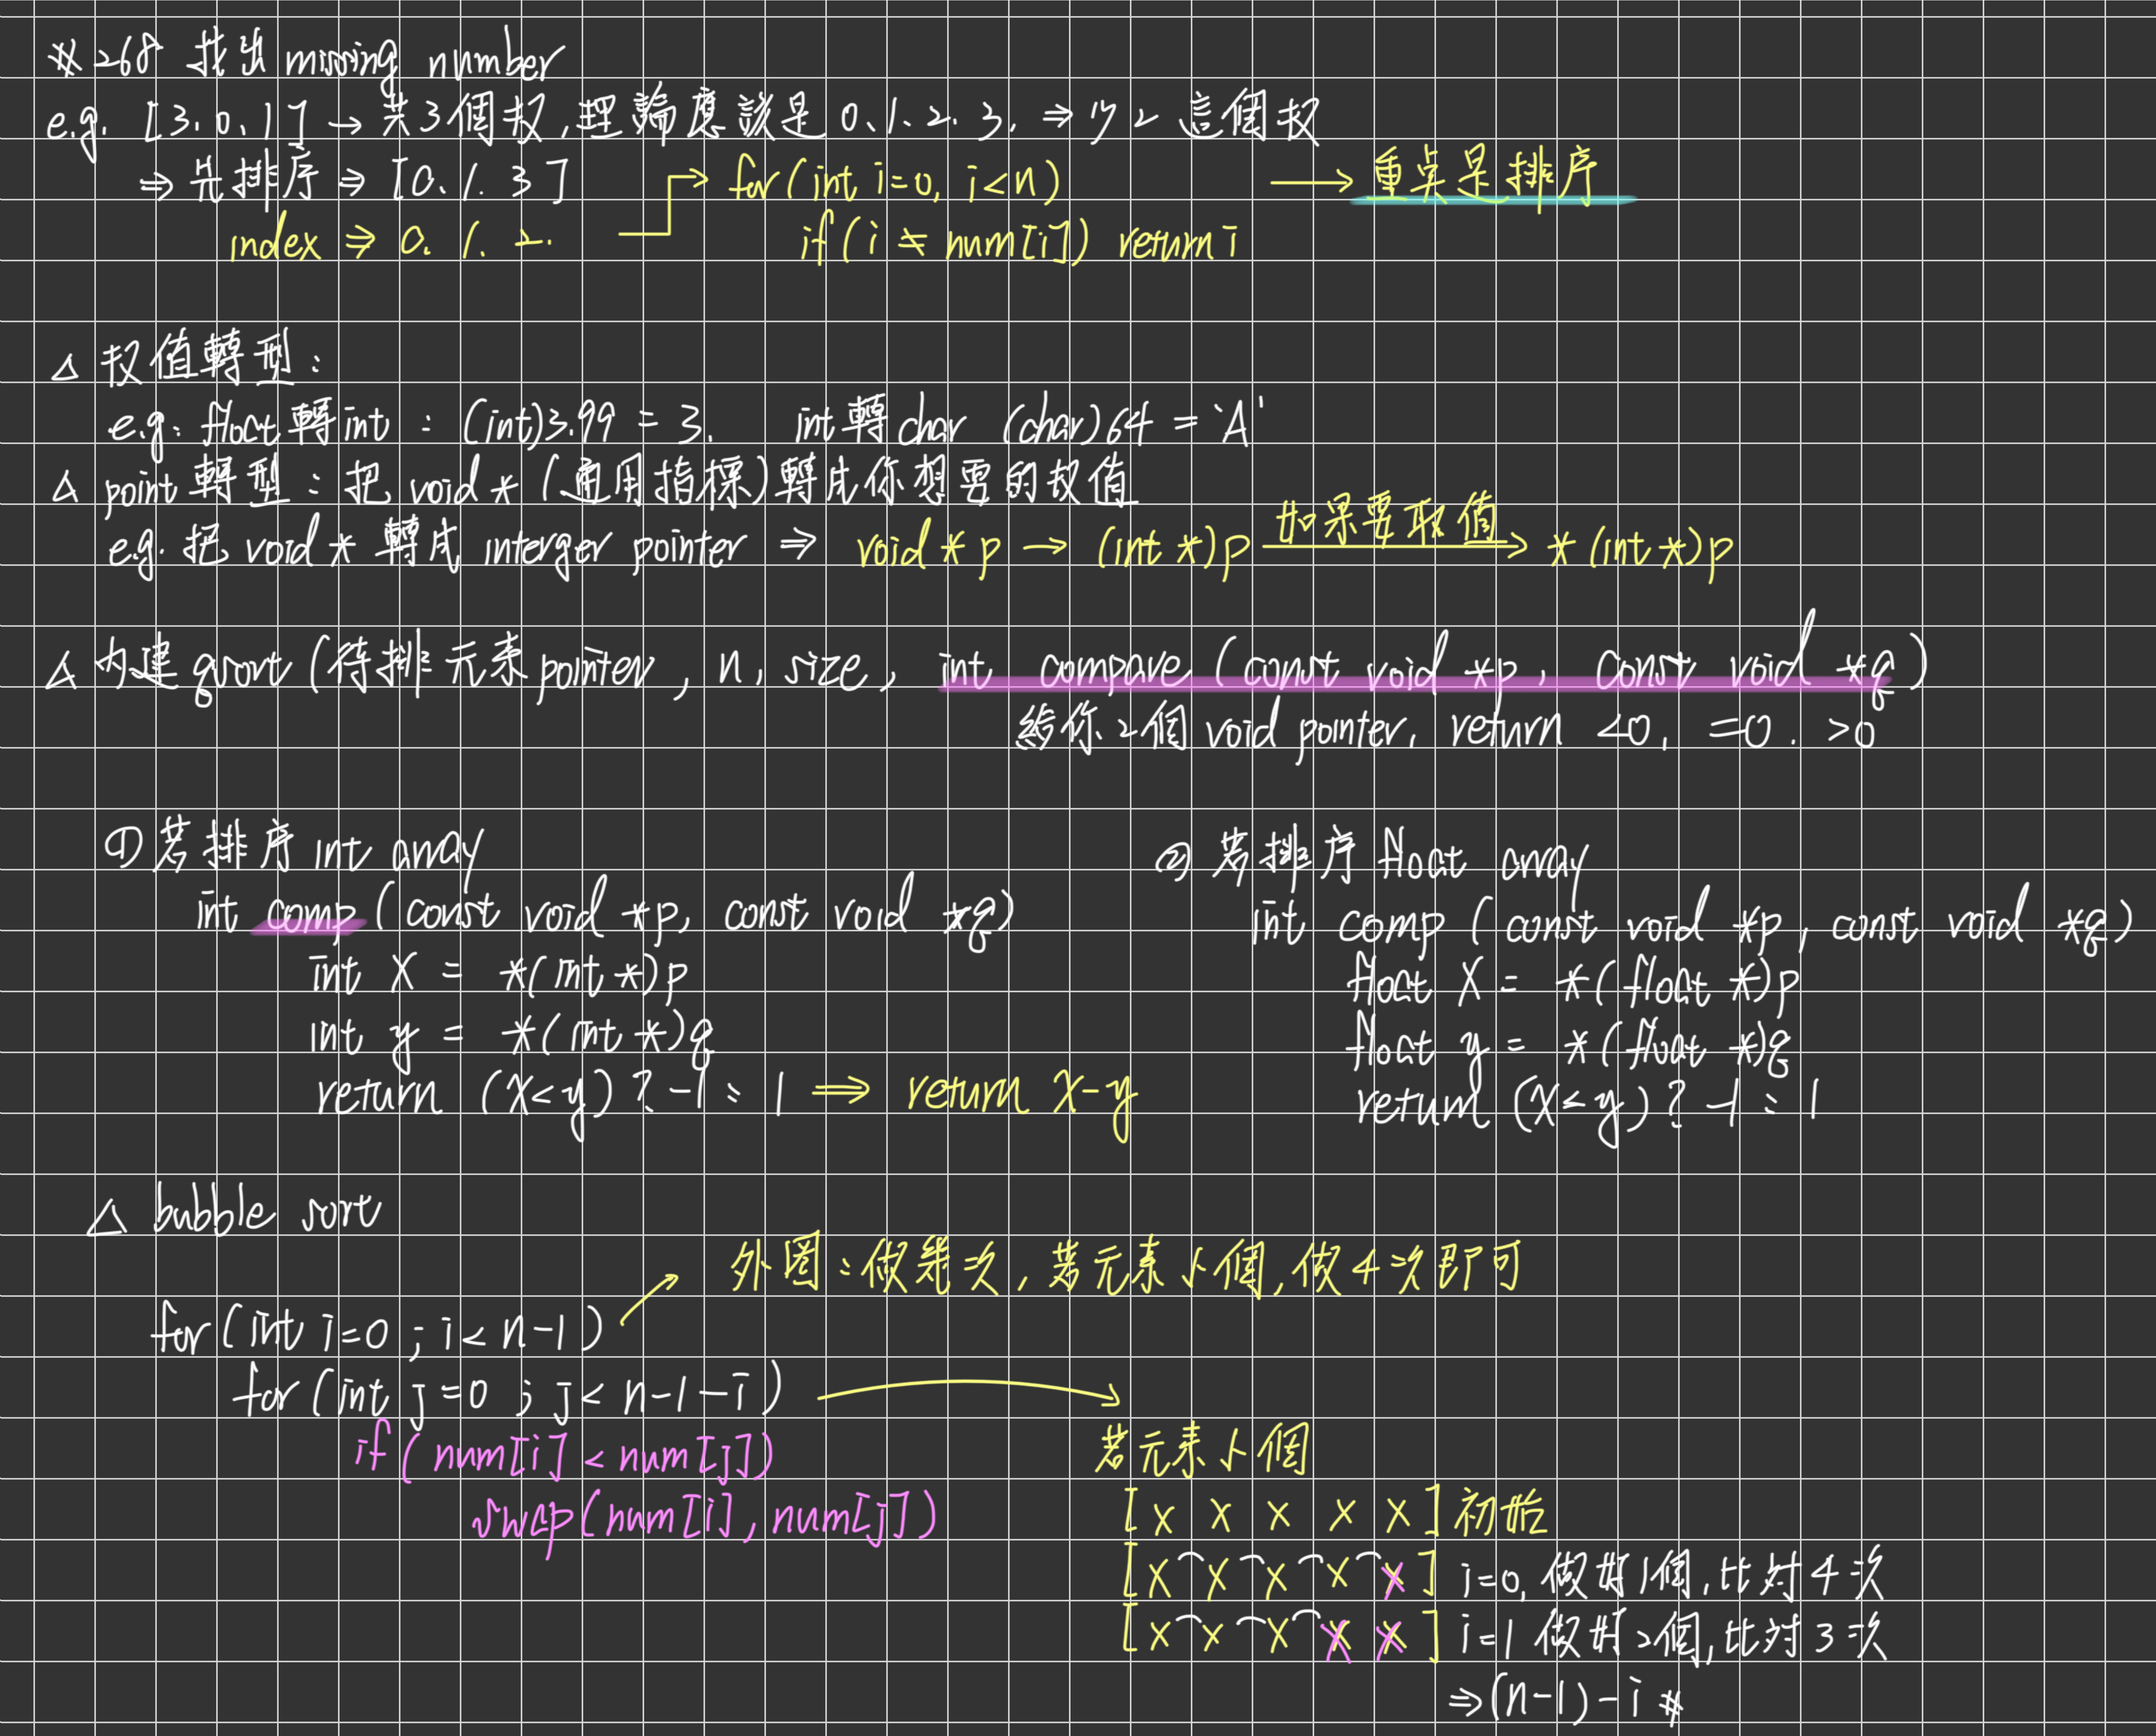 ※268 找出 missing number
e.g. [3.0.1] → 共3個数,理論應該是 0.1.2.3. ⇒ 少2 這個数
⇒ 先排序 ⇒ [0.1.3] → for(int i=0, i<n) → 重点是排序
index ⇒ 0.1.2. if(i ≠ num[i]) return i
△ 数值轉型:
e.g. float轉int : (int)3.99 = 3. int轉char (char)64 = 'A'
△ point轉型:把 void * (通用指標)轉成你想要的数值
e.g. 把 void * 轉成 interger pointer ⇒ void *p → (int *)p 如果要取值 → *(int *)p
△ 内建 qsort (待排元素pointer, n, size, int compare (const void *p, const void *q)
給你2個 void pointer, return <0, =0. >0
① 若排序 int array
int comp (const void *p, const void *q)
int x = *(int *)p
int y = *(int *)q
return (x<y) ? -1 : 1 ⇒ return x-y
② 若排序 float array
int comp (const void *p, const void *q)
float x = *(float *)p
float y = *(float *)q
return (x<y) ? -1 : 1
△ bubble sort
外圈:做幾次,若元素5個,做4次即可
for(int i=0 ; i< n-1)
for(int j=0 ; j< n-1-i)
if(num[i] < num[j])
swap(num[i], num[j])
若元素5個
[x x x x x] 初始
[x x x x x] i=0, 做好1個,比對4次
[x x x x x] i=1 做好2個,比對3次
⇒(n-1)-i #